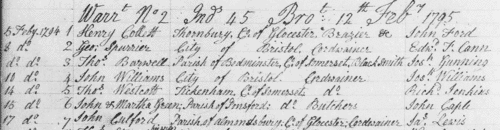 Warrt No 2 Ind 45 Brot 12th Feby 1795
5 Feby 1794 1 Henry Collett Thornbury, Co of Glocester Brazier & John Ford
8 do 2 Geo: Spurrier City of Bristol Cordwainer Edwd T. Cann
do do 3 Thos Bagwell Parish of Bedminster, C. of Somerset, Black Smith Jos: Gunning
10 do 4 John Williams City of Bristol Cordwainer Jos: Williams
14 do 5 Thos Westcott Tickenham, C. of Somerset do Richd Jenkins
16 do 6 John & Martha Green; Parish of do Butchers John Caple
17 do 7 John Parish of almondsbury C. of Glocester; Cordwainer Jas Lewis